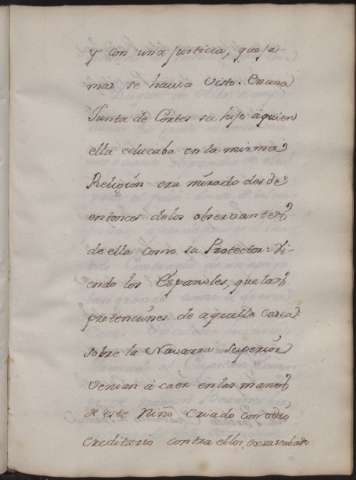 y con una justicia, que ja-
mas se havia visto. En una
Junta de Cortes su hijo à quien
ella educaba en la misma
Religion era mirado desde
entonces de los observantes
de ella como su Protector: Vi-
endo los Españoles, que las
pretenciones de aquella Corona
sobre la Navarra Superior
venian à caer en las manos
de este Niño criado con odio
ereditario contra ellos,